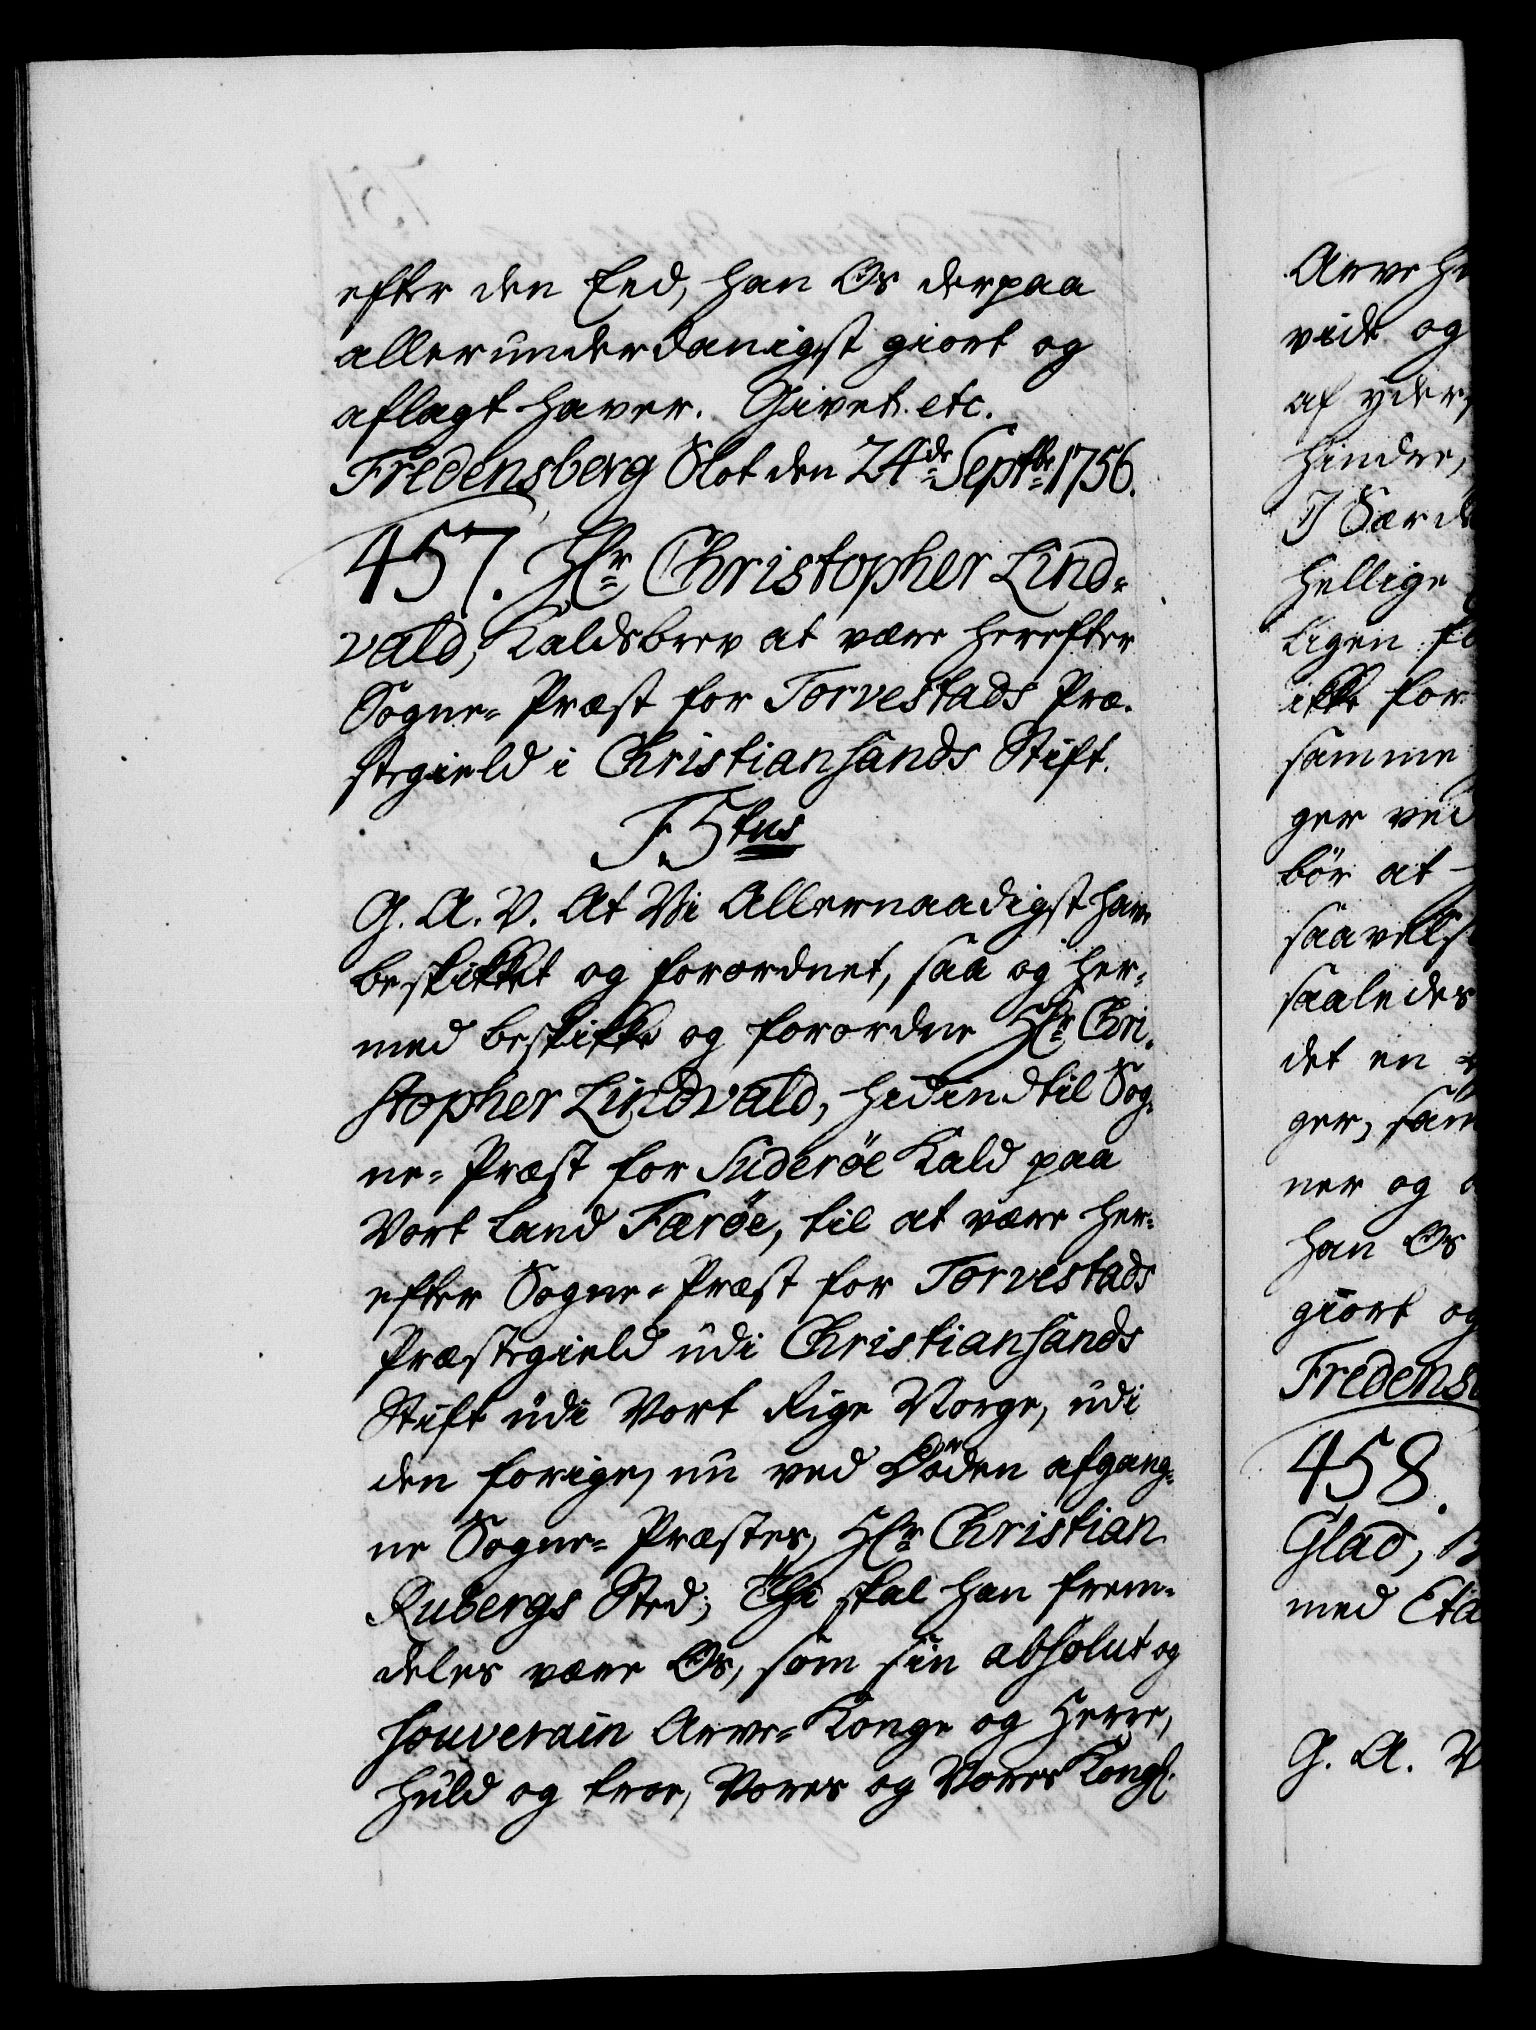 efter den Eed, han Os derpaa
allerunderdanigst giort og
aflagt haver. Givet etc.
Fredensberg Slot den 24de Septbr 1756.
457. Hr Christopher Lind-
vald, Kaldsbrev at være herefter
Sogne-Præst for Torvestads Præ-
stegield i Christiansands Stift.
F5tus
G. A. V. At Vi Allernaadigst have
beskikket og forordnet, saa og her-
med beskikke og forordne Hr Chri-
stopher Lindvald, hidindtil Sog-
ne-Præst for Suderöe Kald paa
Vort Land Færöe, til at være her-
efter Sogne-Præst for Torvestads
Præstegield udi Christiansands
Stift udi Vort Rige Norge, udi
den forige, nu ved Döden afgang-
ne Sogne-Præstes, Hr Christian
Rubergs Sted; Thi skal han frem-
deles være Os, som sin absolut og
souverain Arve-Konge og Herre,
huld og troe, Vores og Vores Kongl.
Arve
vidt og
af yder
hindre,
I Særde
hellige
ligen
ikke for
samme
ger ved
bör at
saavelsom
saaledes
det en
ger, sam
ner og
han Os
giort og
Fredens
458.
Glad,
med Eta
G. A. V